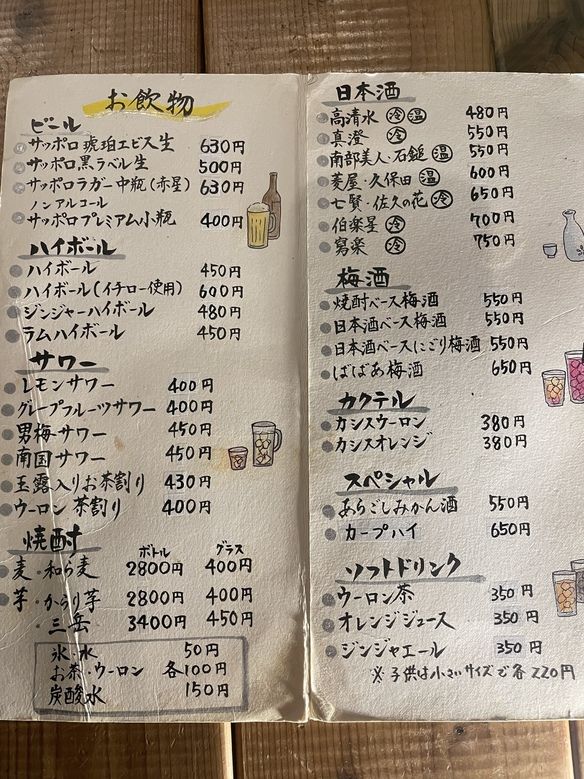 お飲物
ビール
サッポロ 琥珀エビス生 630円
サッポロ黒ラベル生 500円
サッポロラガー中瓶(赤星) 630円
ノンアルコール
サッポロプレミアム小瓶 400円
ハイボール
ハイボール 450円
ハイボール(イチロー使用) 600円
ジンジャーハイボール 480円
ラムハイボール 450円
サワー
レモンサワー 400円
グレープフルーツサワー 400円
男梅サワー 450円
南国サワー 450円
玉露入りお茶割り 430円
ウーロン茶割り 400円
焼酎
ボトル グラス
麦・和ら麦 2800円 400円
芋・からり芋 2800円 400円
・三岳 3400円 450円
氷・水 50円
お茶・ウーロン 各100円
炭酸水 150円
日本酒
高清水 冷 温 480円
真澄 冷 550円
南部美人・石鎚 温 550円
菱屋・久保田 温 600円
七賢・佐久の花 冷 650円
伯楽星 冷 700円
寫楽 冷 750円
梅酒
焼酎ベース梅酒 550円
日本酒ベース梅酒 550円
日本酒ベースにごり梅酒 550円
ばばあ梅酒 650円
カクテル
カシスウーロン 380円
カシスオレンジ 380円
スペシャル
あらごしみかん酒 550円
カープハイ 650円
ソフトドリンク
ウーロン茶 350円
オレンジジュース 350円
ジンジャエール 350円
※子供は小さいサイズで各220円